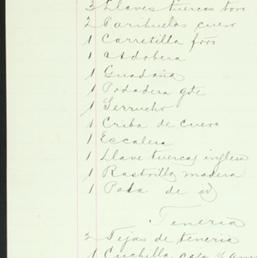 3 Llaves tuercas
2 Parihuelas cuero
1 Carretilla
1 Adobera
1 Guadaña
1 Podadera gde
1 Serrucho
1 Criba de cuero
1 Escalera
1 Llave tuercas inglesa
1 Rastrillo madera
1 Pala de id
Tenería
2 Tejas de tenería
1 Cuchilla